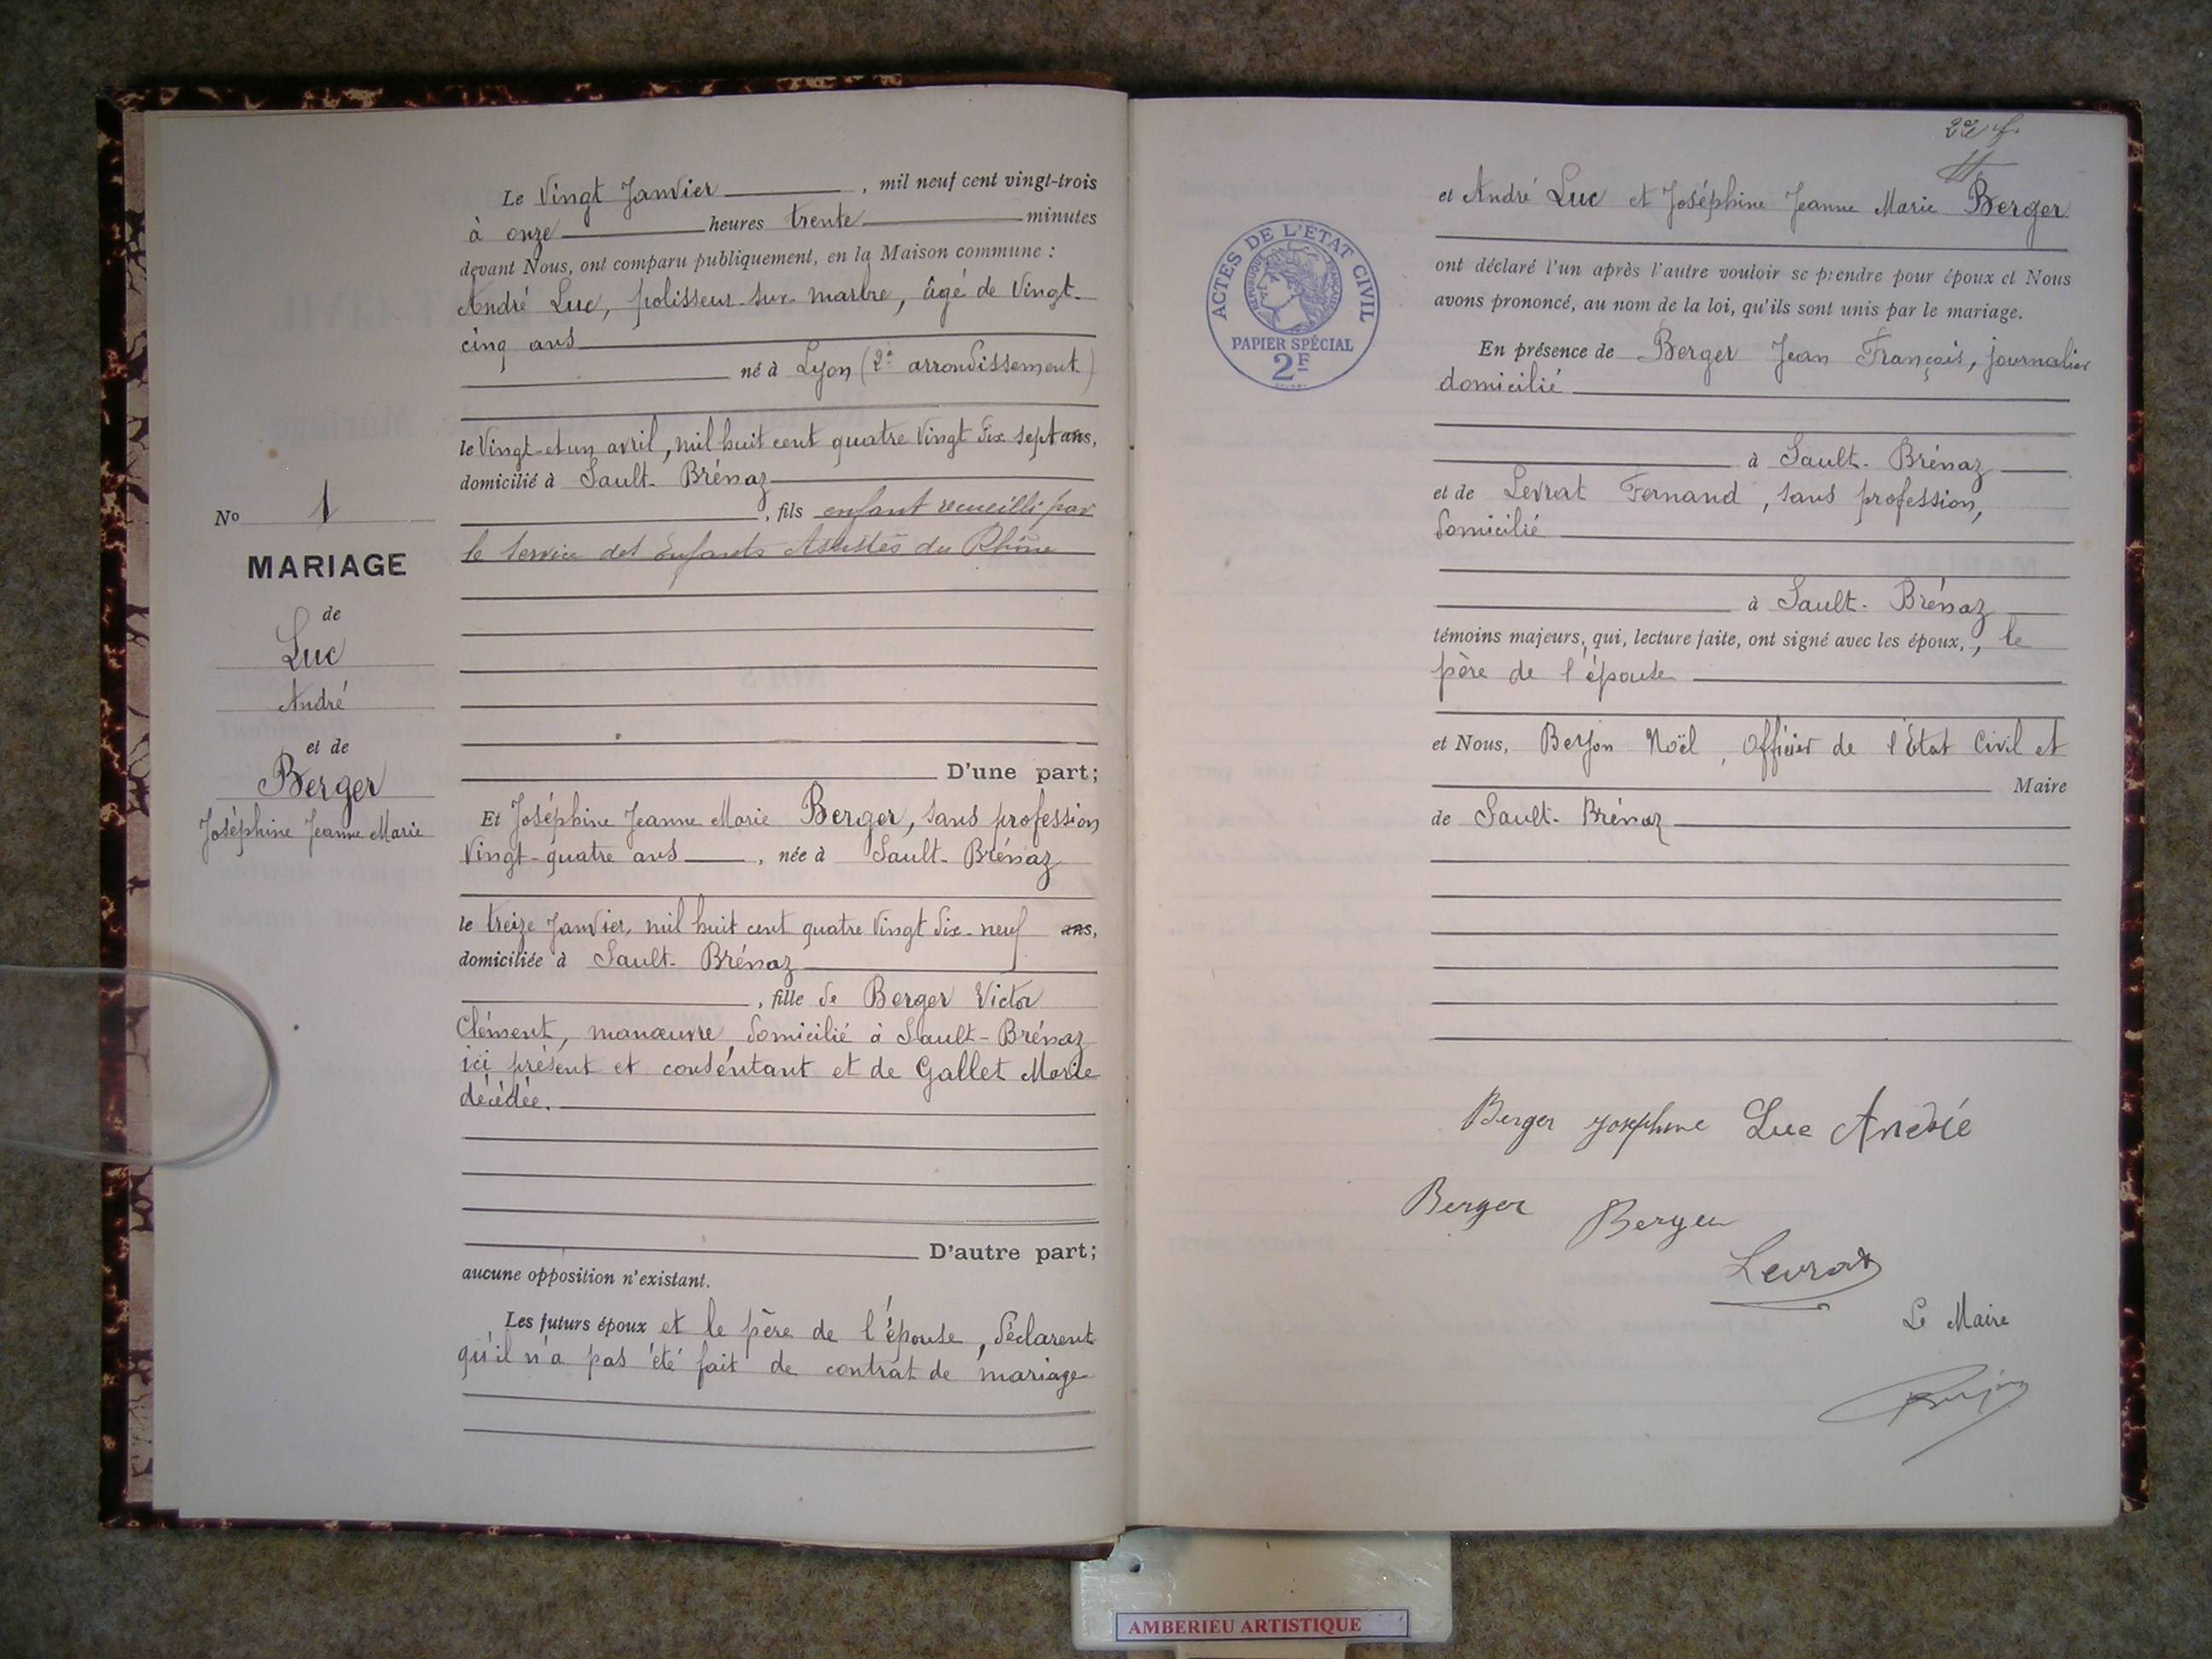 No 1
MARIAGE
de
Luc
André
et de
Berger
Joséphine Jeanne Marie
Le Vingt Janvier , mil neuf cent vingt-trois
à onze heures trente minutes
devant Nous, ont comparu publiquement, en la Maison commune :
André Luc, polisseur-sur-marbre, âgé de Vingt-
cinq ans
né à Lyon (2e arrondissement)
le Vingt-et-un avril, mil huit cent quatre Vingt dix sept ans,
domicilié à Sault-Brénaz
, fils enfant recueilli par
le Service des Enfants Assistés du Rhône
D'une part;
Et Joséphine Jeanne Marie Berger, sans profession
Vingt-quatre ans , née à Sault-Brénaz
le treize Janvier, mil huit cent quatre Vingt dix-neuf ans,
domiciliée à Sault-Brénaz
, fille de Berger Victor
Clément, manœuvre, domicilié à Sault-Brénaz
ici présent et consentant et de Gallet Marie
décédée.
D'autre part;
aucune opposition n'existant.
Les futurs époux et le père de l'épouse, déclarent
qu'il n'a pas été fait de contrat de mariage
2e f.
et André Luc et Joséphine Jeanne Marie Berger
ont déclaré l'un après l'autre vouloir se prendre pour époux et Nous
avons prononcé, au nom de la loi, qu'ils sont unis par le mariage.
ACTES DE L'ÉTAT CIVIL
RÉPUBLIQUE FRANÇAISE
PAPIER SPÉCIAL
2F
En présence de Berger Jean François, journalier
domicilié
à Sault-Brénaz
et de Levrat Fernand, sans profession,
domicilié
à Sault-Brénaz
témoins majeurs, qui, lecture faite, ont signé avec les époux, , le
père de l'épouse
et Nous, Berjon Noël, Officier de l'Etat Civil et
Maire
de Sault-Brénaz
Berger Josephine Luc André
Berger Berger
Levrat
Le Maire
AMBERIEU ARTISTIQUE